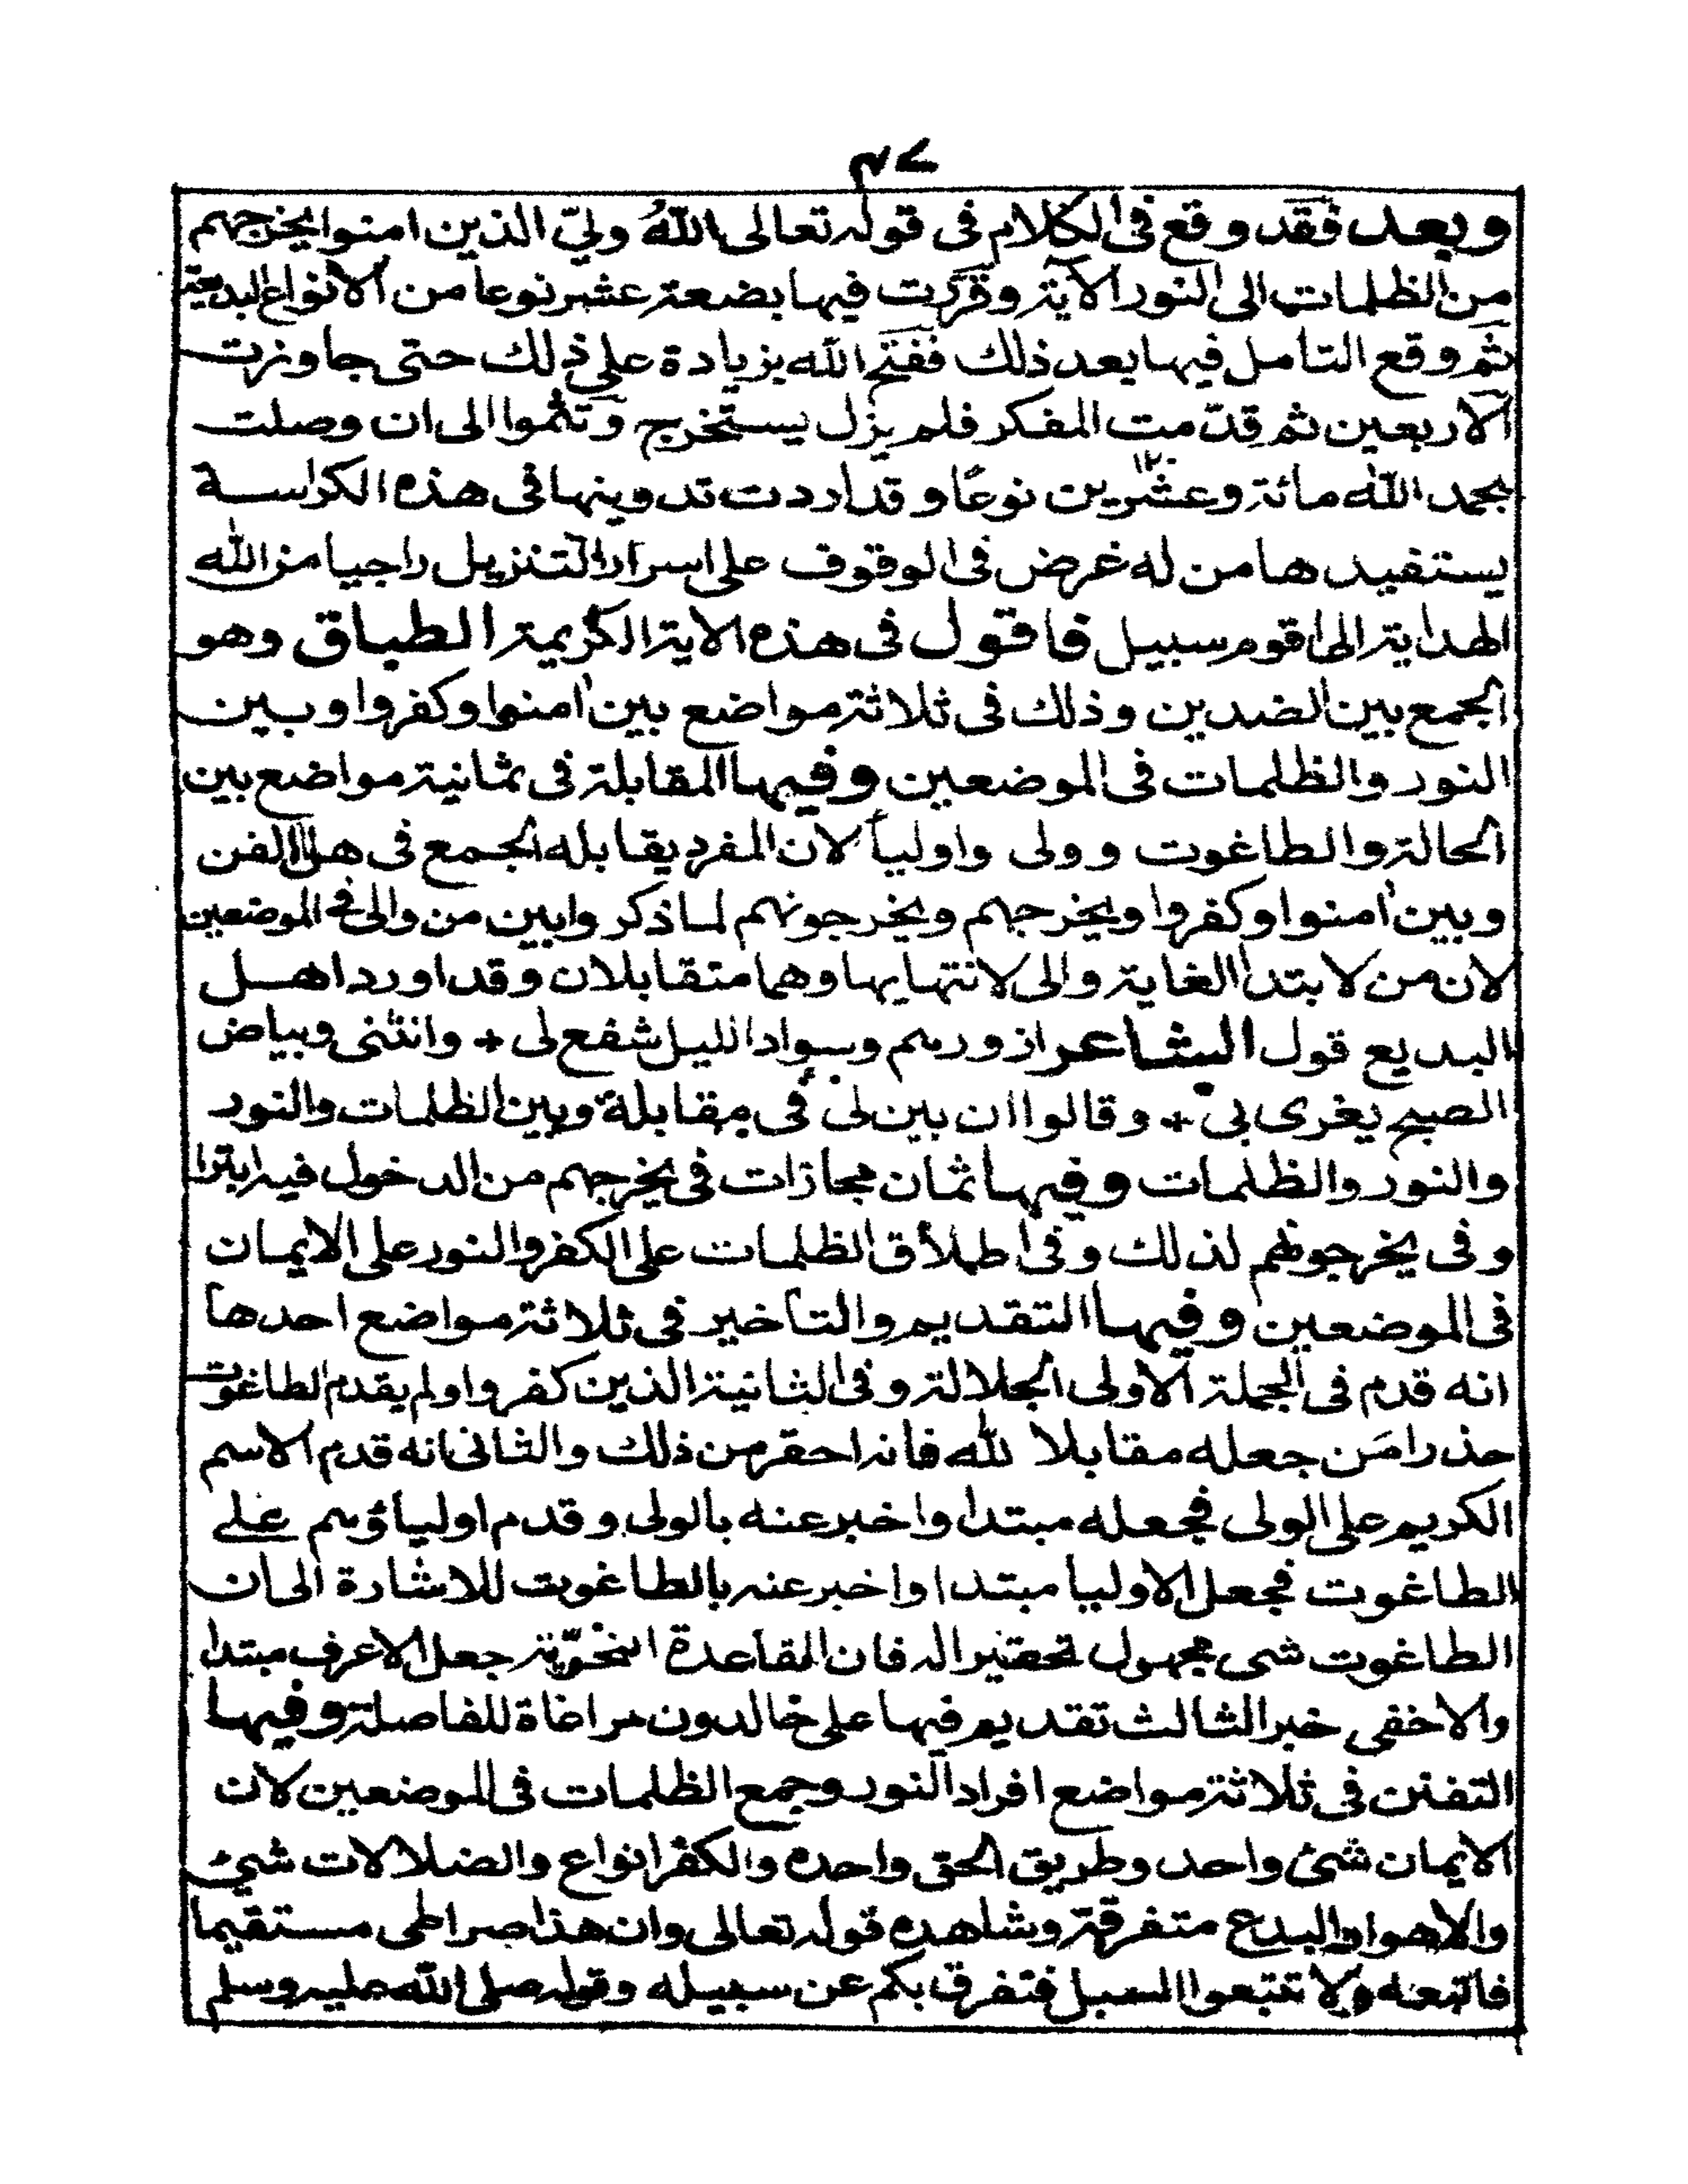 ٤٧
وبعد فقد وقع فى الكلام فى قوله تعالى الله وليّ الذين امنوا يخرجهم
من الظلمات الى النور الآية وقررت فيها بضعة عشر نوعا من الانواع البديعية
ثم وقع التامل فيها بعد ذلك ففتح الله بزيادة على ذلك حتى جاوزت
الاربعين ثم قدّمت المفكر فلم يزل يستخرج الى ان وصلت
بحمد الله مائة وعشرين ١٢٠ نوعًا وقد اردت تدوينها فى هذه الكراسة
يستفيدها من له غرض فى الوقوف على اسرار التنزيل راجيا من الله
الهداية الى اقوم سبيل فاقول فى هذه الاية الكريمة الطباق وهو
الجمع بين الضدين وذلك فى ثلاثة مواضع بين امنوا وكفروا وبين
النور والظلمات فى الموضعين وفيها المقابلة فى ثمانية مواضع بين
الحالة والطاغوت وولى واوليأ لان المفرد يقابله الجمع فى هذا الفن
وبين امنوا وكفروا ويخرجهم ويخرجونهم لما ذكر وابين من والى فى الموضعين
لان من لابتدأ الغاية والى لانتهايها وهما متقابلان وقد اورد اهل
البديع قول الشاعر ازورهم وسواد الليل شفع لى + وانثنى وبياض
الصبح يغرى بى + وقالوا ان بين لى فى مقابلة وبين الظلمات والنور
والنور والظلمات وفيها ثمان مجازات فى يخرجهم من الدخول فيه ابتدا
وفى يخرجونهم لذلك وفى اطلاق الظلمات على الكفر والنور على الايمان
فى الموضعين وفيها التقديم والتاخير فى ثلاثة مواضع احدها
انه قدم فى الجملة الاولى الجلالة وفى الثانية الذين كفروا ولم يقدم الطاغوت
حذرا من جعله مقابلا لله فانه احقر من ذلك والثانى انه قدم الاسم
الكريم على الولى فجعله مبتدا واخبر عنه بالولى وقدم اولياؤهم على
الطاغوت فجعل الاوليا مبتدا واخبر عنه بالطاغوت للاشارة الى ان
الطاغوت شى مجهول تحقيرا له فان القاعدة النحوّية جعل الاعرف مبتدا
والاخفى خبر الثالث تقديم فيها على خالدون مراعاة للفاصلة وفيها
التفنن فى ثلاثة مواضع افراد النور وجمع الظلمات فى الموضعين لان
الايمان شئ واحد وطريق الحق واحده والكفر انواع والضلالات شئ
والاهوا والبدع متفرقة وشاهده قوله تعالى وان هذا صراطى مستقيما
فاتبعه ولا تتبعوا السبل فتفرق بكم عن سبيله وقوله صلى الله عليه وسلم